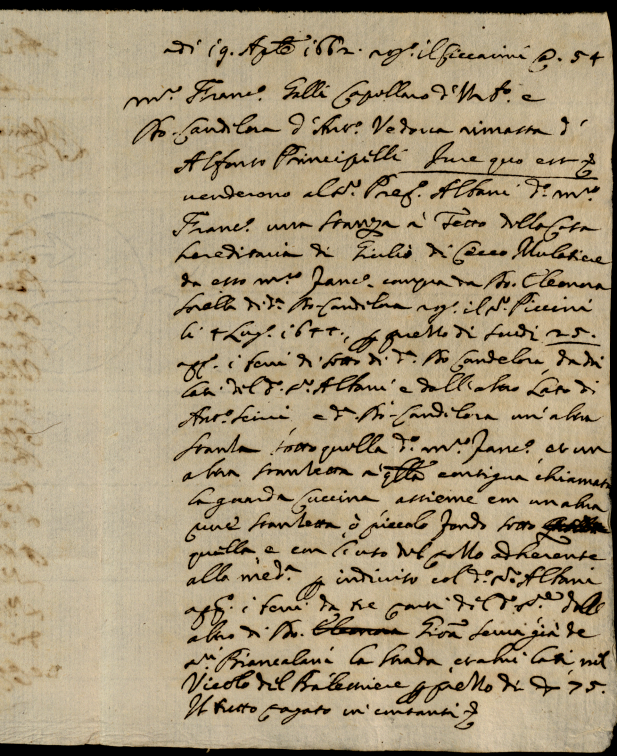 adi 19. Aple 1662. rog. il Ciccarini @. 54
mro. Franco. Galli Capellaro d'Urbo. e
Da. Candilora d'Anto. Vedova rimasta d'
Alfonso Principilli Jure quo est
venderono al Sr. Prefo. Albani do. mro.
Franco. una stanza à Tetto della Casa
hereditaria di Giulio di Cecco Mulatiere
da esso mro. Franco. compra da Da. Eleonora
Sorella di da. Da. Candilora rog. il Sr. Piccini
li 4 Lugo. 1644., p prezzo di scudi 25.
app. i beni di sotto di da. Da. Candelora, da dui
lati del do. Sr. Albani e dall'altro Lato di
Anto. e da. Da. Candilora un'altra
stanza sotto quella do. mro. Franco. et un
altra stantetta a qlla contigua chiamata
la guarda Cuccina assieme con un altra
stantetta ò piccolo fondo sotto
quella e con l'uso del pozzo adherente
alla meda. p indiviso col do. Sr. Albani
app. i beni da tre parti del do. Sr. dall
altro di Da. Eleonora Giova già de
Biancalani la strada, et altri lati nel
Vicolo del Balestriere p prezzo di 75.
Il tutto pagato in contanti